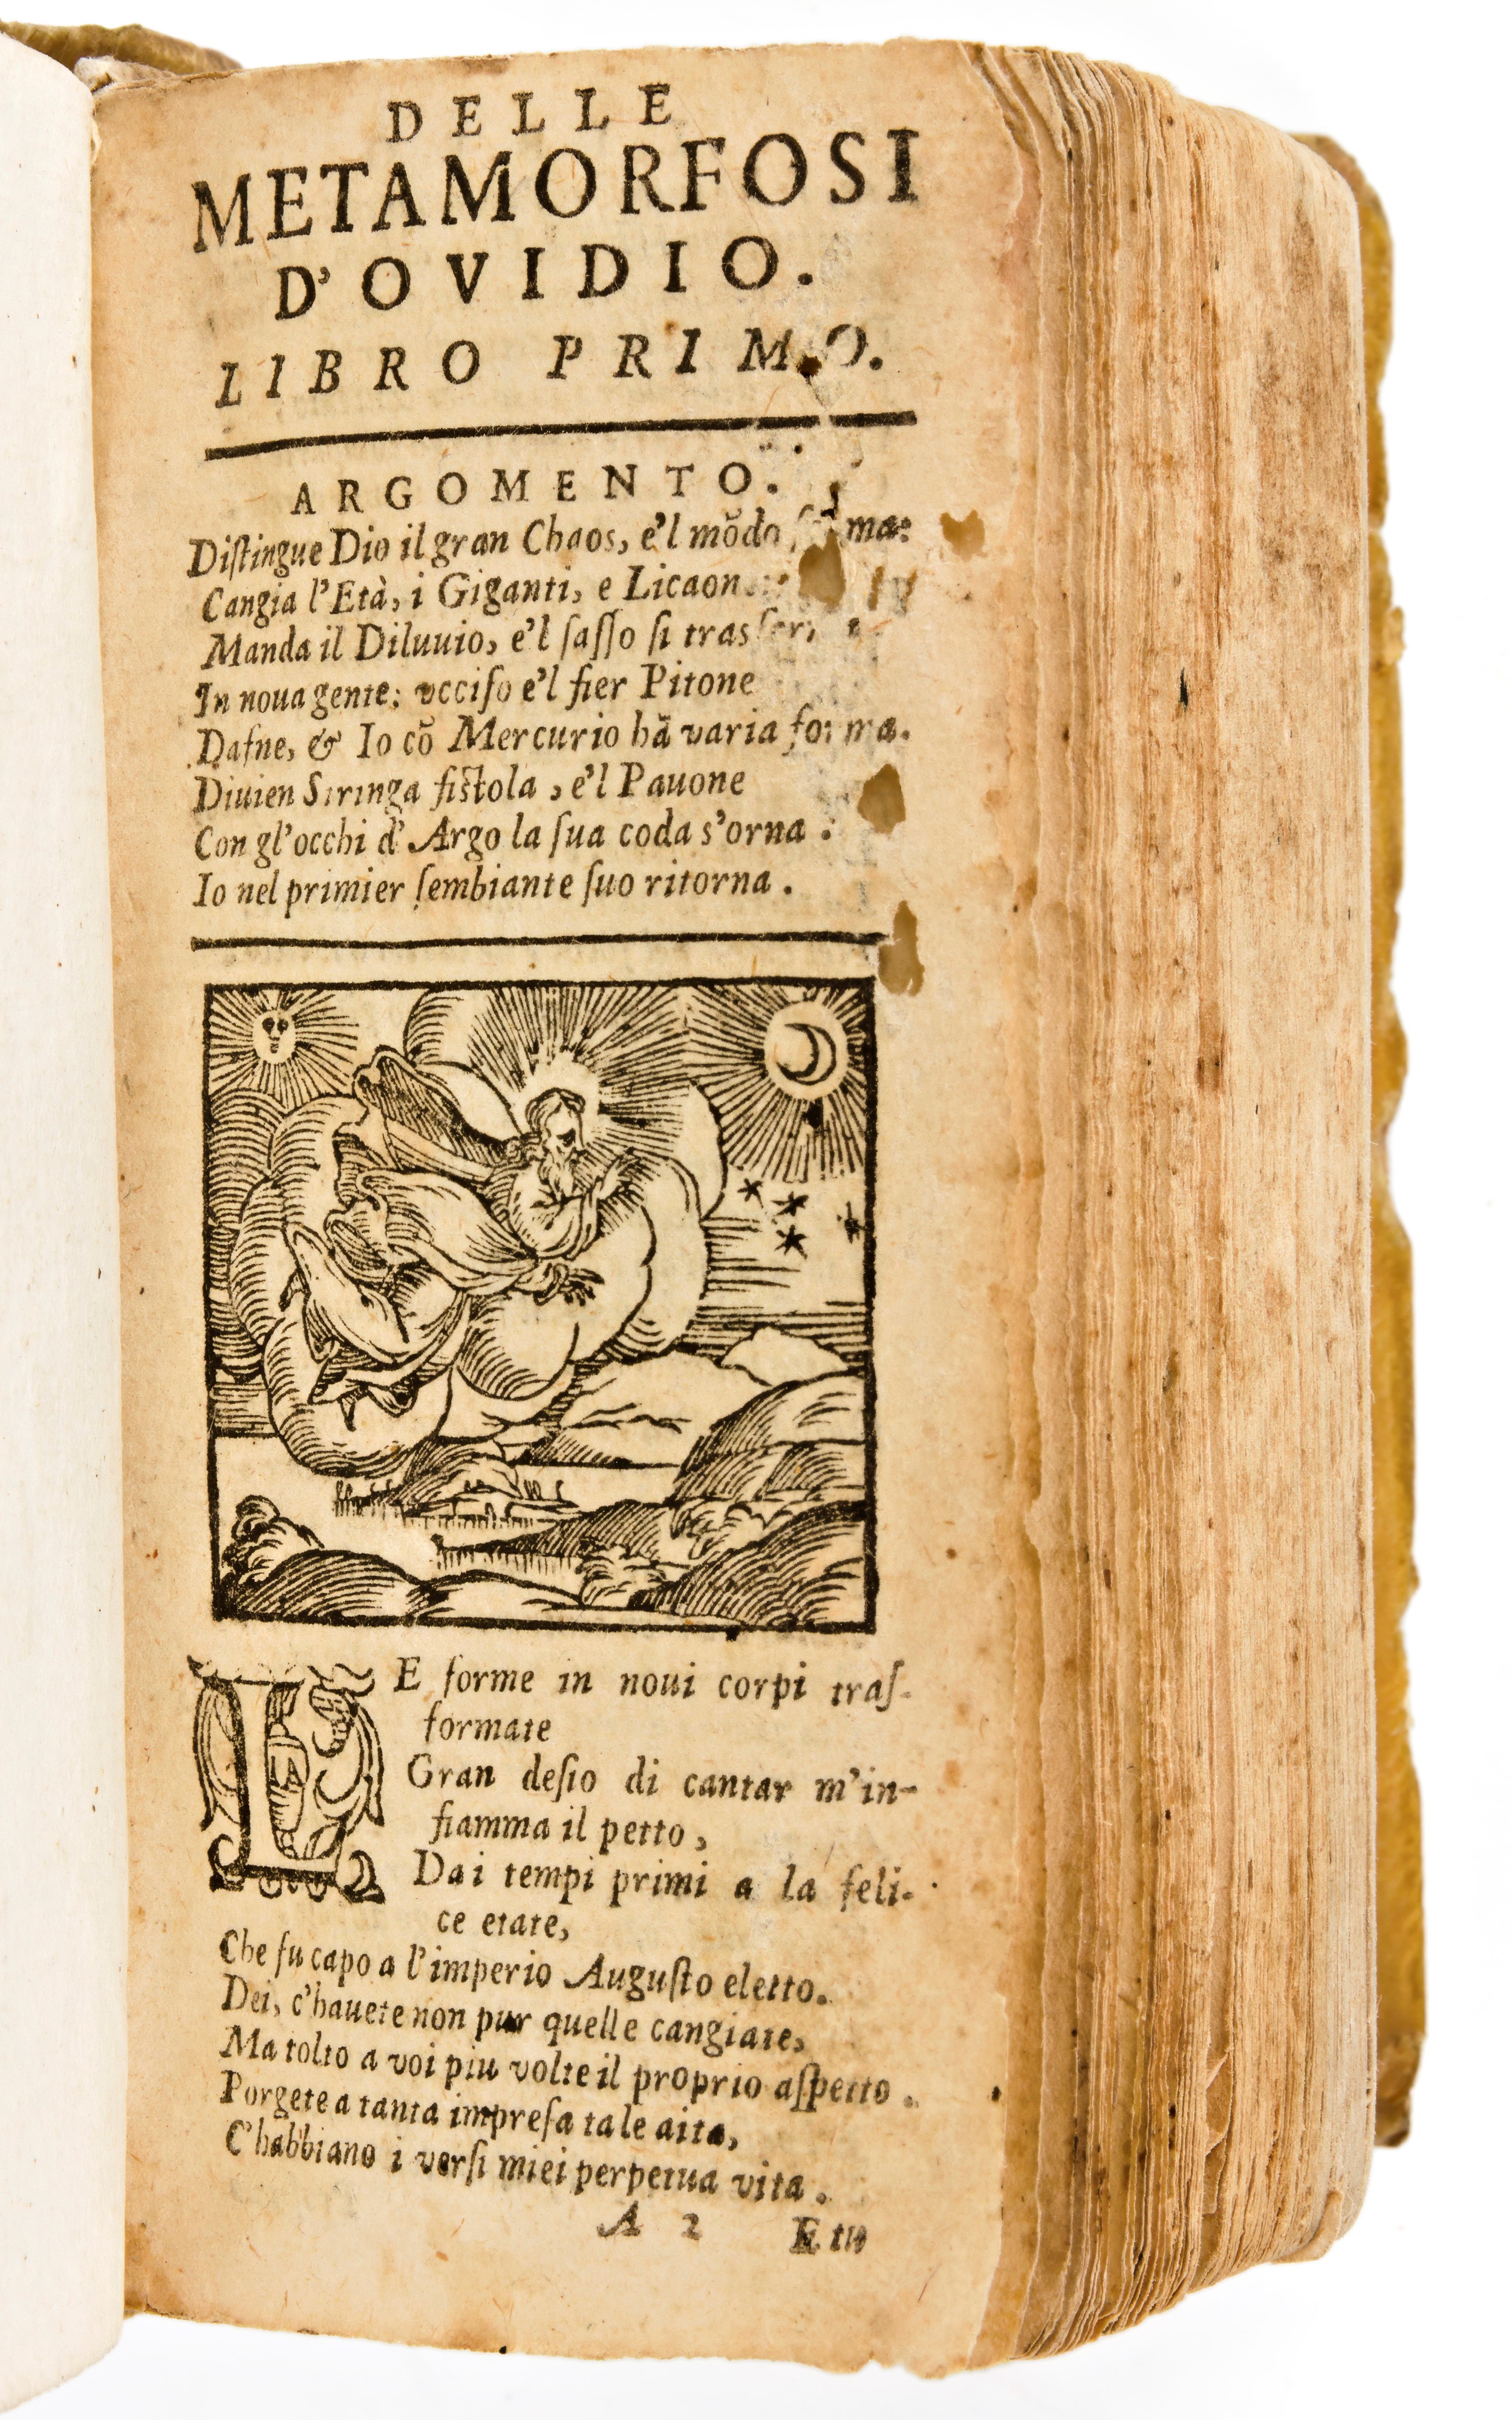 DELLE
METAMORFOSI
D'OVIDIO.
LIBRO PRIMO.
ARGOMENTO.
Diſtingue Dio il gran Chaos, e'l mõdo
Cangia l'Età, i Giganti, e Licaon
Manda il Diluuio, e'l ſaſſo ſi
In noua gente: vcciſo e'l fier Pitone
Dafne, & Io cõ Mercurio hã varia forma.
Diuien Siringa fiſtola, e'l Pauone
Con gl'occhi d'Argo la ſua coda s'orna:
Io nel primier ſembiante ſuo ritorna.
LE forme in noui corpi traſ-
formate
Gran deſio di cantar m'in-
fiamma il petto,
Da i tempi primi a la feli-
ce etate,
Che fu capo a l'imperio Auguſto eletto.
Dei, c'hauete non pur quelle cangiate,
Ma tolto a voi piu volte il proprio aſpetto.
Porgete a tanta impreſa tale aita,
C'habbiano i verſi miei perpetua vita.
A 2 E tu